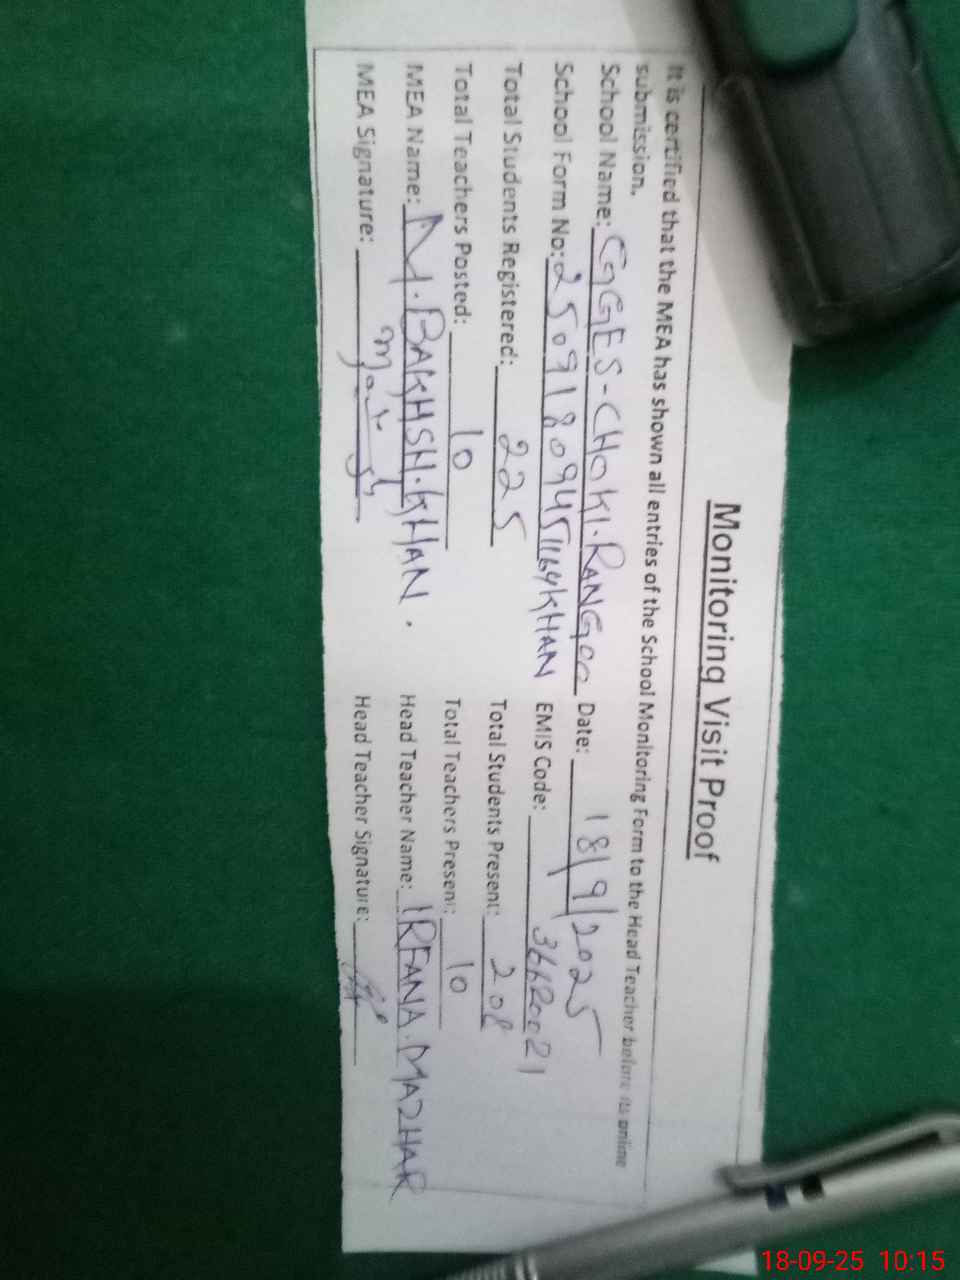 Monitoring Visit Proof
It is certified that the MEA has shown all entries of the School Monitoring Form to the Head Teacher before its online
submission.
School Name: GGES-CHOKI.RANGOO Date: 18/9/2025
School Form No: 25091809451164KHAN EMIS Code: 36620021
Total Students Registered: 225 Total Students Present: 208
Total Teachers Posted: 10 Total Teachers Present: 10
MEA Name: M.BAKHSH.KHAN. Head Teacher Name: IRFANA.MAZHAR
MEA Signature: Head Teacher Signature:
18-09-25 10:15